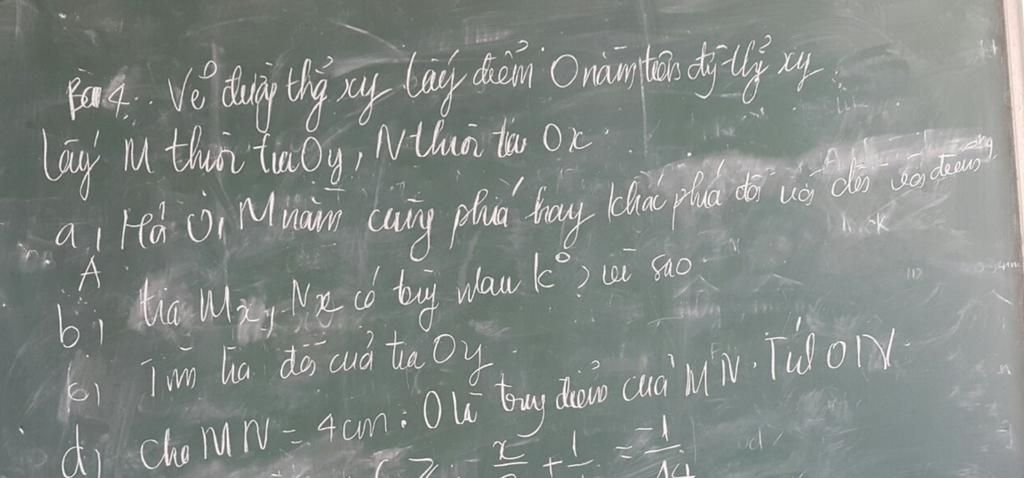 Bài 4. Vẽ đường thẳng xy lấy điểm O nằm trên đg thẳng xy
lấy M thuộc tia Oy, N thuộc tia Ox
a, Hỏi O, M nằm cùng phía hay khác phía đối với đối với điểm
A
b, tia Mx, Nx có trùng nhau k° ? vì sao
c, Tìm tia đối của tia Oy
d, cho MN = 4cm. O là trung điểm của MN. Tính ON
x + 1 = -1
14